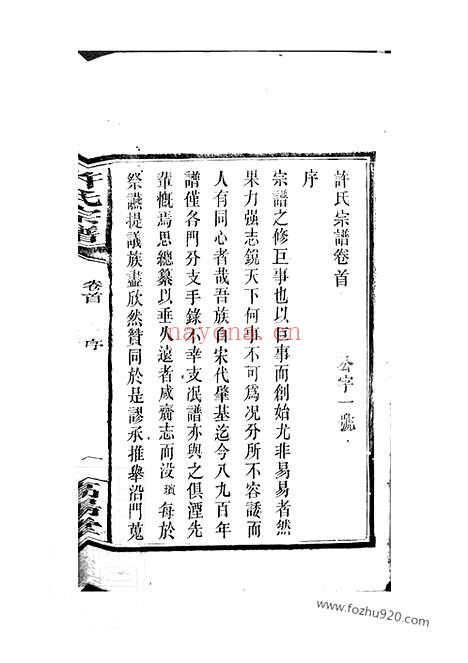 許氏宗譜卷首
公字一號
序
宗譜之修巨事也以巨事而創始尤非易易者然
果力强志銳天下何事不可爲况分所不容諉而
人有同心者哉吾族自宋代肇基迄今八九百年
譜僅各門分支手錄不幸支泯譜亦與之俱湮先
輩慨焉思總纂以垂久遠者咸齎志而没瓚每於
祭讌提議族盡欣然贊同於是謬承推舉沿門蒐
許氏宗譜
卷首
序
一
高陽堂
nayona.cn
www.fozhu920.com